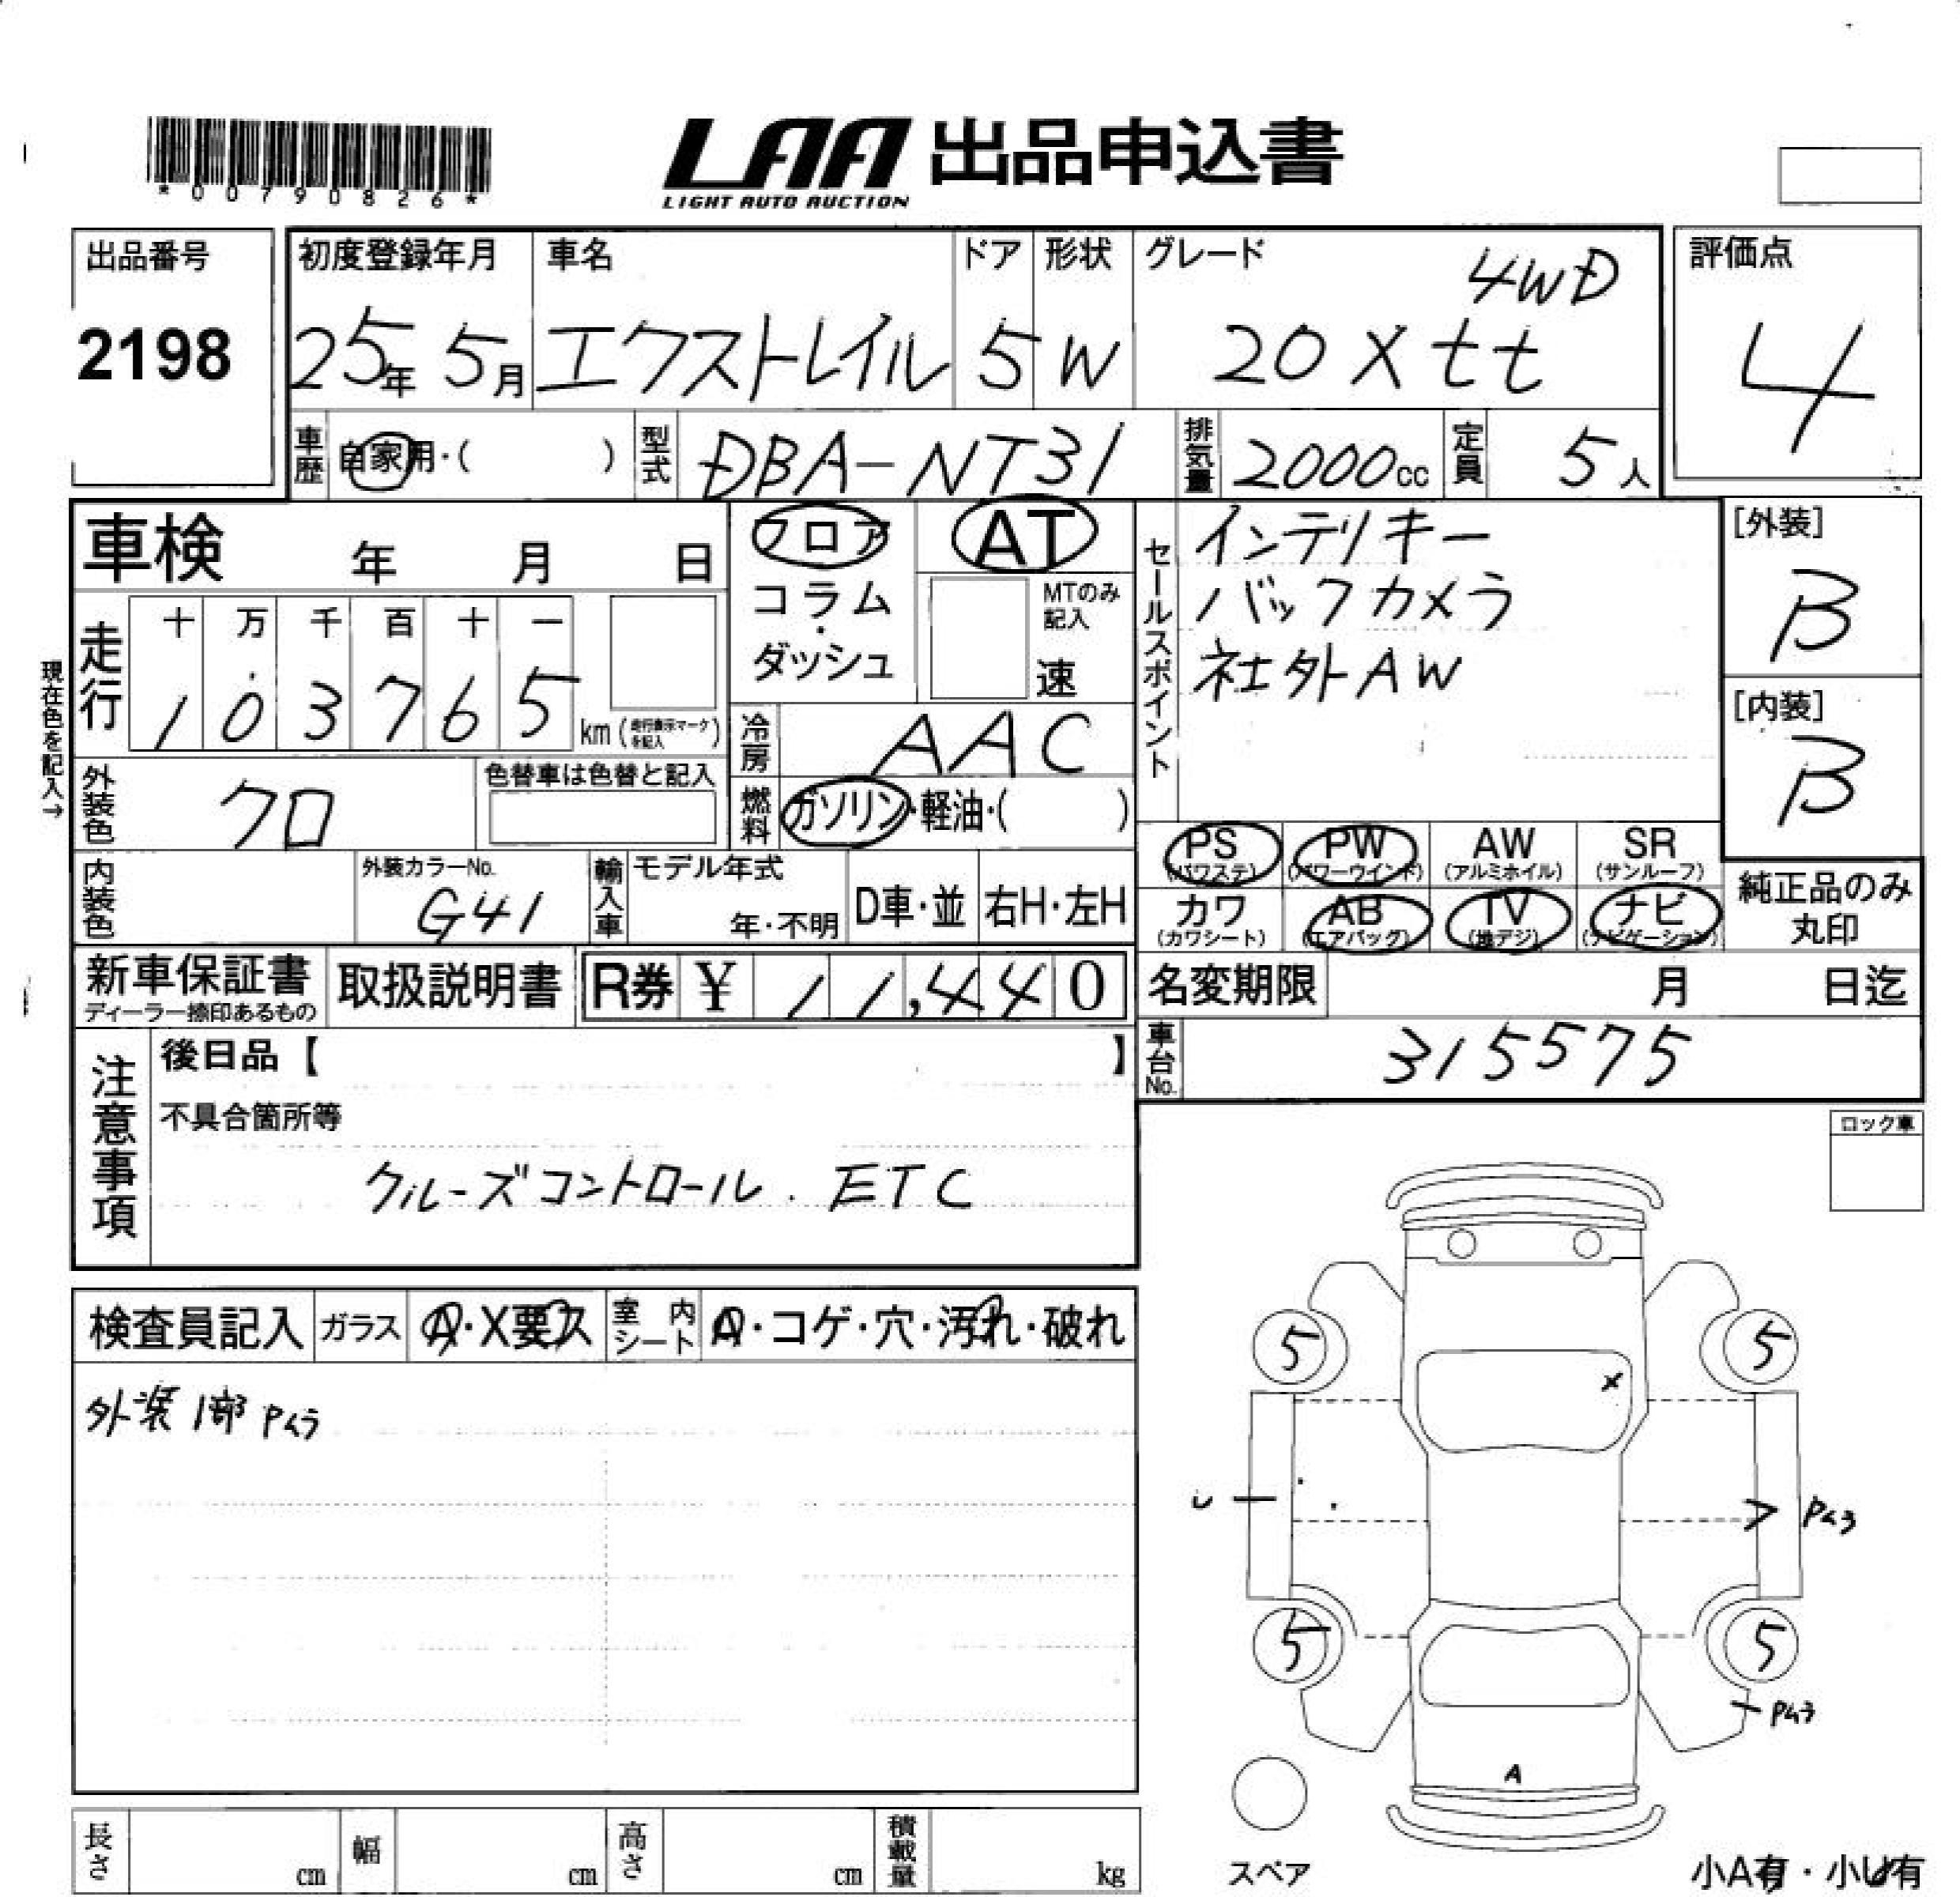 *00790826*
LAA 出品申込書
LIGHT AUTO AUCTION
出品番号
2198
初度登録年月 車名 ドア 形状 グレード
4WD
25年 5月 エクストレイル 5 W 20Xtt
評価点
4
車歴 自家用・( ) 型式 DBA-NT31 排気量 2000cc 定員 5人
車検 年 月 日
フロア AT
コラム・ダッシュ
MTのみ記入
速
走行 十 万 千 百 十 一
1 0 3 7 6 5 km (走行表示マークを記入)
現在色を記入→
セールスポイント
インテリキー
バックカメラ
社外AW
[外装]
B
[内装]
B
冷房 AAC
外装色 クロ 色替車は色替と記入
燃料 ガソリン・軽油・( )
PS (パワステ) PW (パワーウインド) AW (アルミホイル) SR (サンルーフ)
カワ (カワシート) AB (エアバッグ) TV (地デジ) ナビ (ナビゲーション)
純正品のみ
丸印
内装色 外装カラーNo. G41 輸入車 モデル年式 年・不明 D車・並 右H・左H
新車保証書 ディーラー捺印あるもの 取扱説明書 R券 ¥ 11,440
名変期限 月 日迄
車台No. 315575
注意事項
後日品【 】
不具合箇所等
クルーズコントロール. ETC
ロック車
検査員記入 ガラス A・X要ス 室内シート A・コゲ・穴・汚れ・破れ
外装1部Pムラ
5 5
X
U Pムラ
5 5
Pムラ
A
スペア
小A有・小U有
長さ cm 幅 cm 高さ cm 積載量 kg